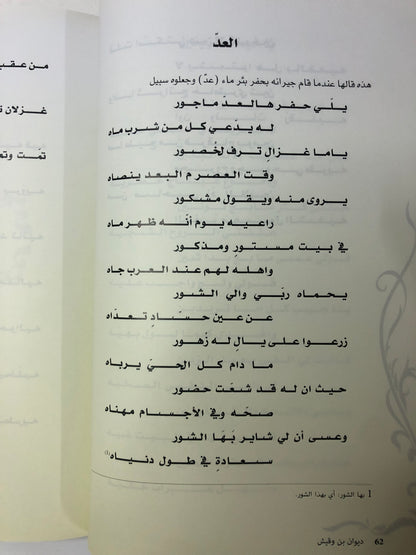 العدّ
هذه قالها عندما قام جيرانه بحفر بئر ماء (عدّ) وجعلوه سبيل
يلّي حفر هالعدّ ماجور
له يدّعي كل من شرب ماه
ياما غزالٍ ترف لخصور
وقت العصر م البعد ينصاه
يروى منه ويقول مشكور
راعيه يوم أنّه ظهر ماه
في بيت مستورٍ ومذكور
واهله لهم عند العرب جاه
يحماه ربّي والي الشور
عن عين حسّادٍ تعدّاه
زرعوا على يالٍ له زهور
ما دام كل الحيّ يرباه
حيث ان له قد شعّت حضور
صحّه وفي الأجسام مهناه
وعسى أن لي شاير بَهَا الشور
سعادةٍ في طول دنياه(1)
1 بها الشور: أي بهذا الشور.
62 ديوان بن وقيش
من عقب
غزلان
تمّت